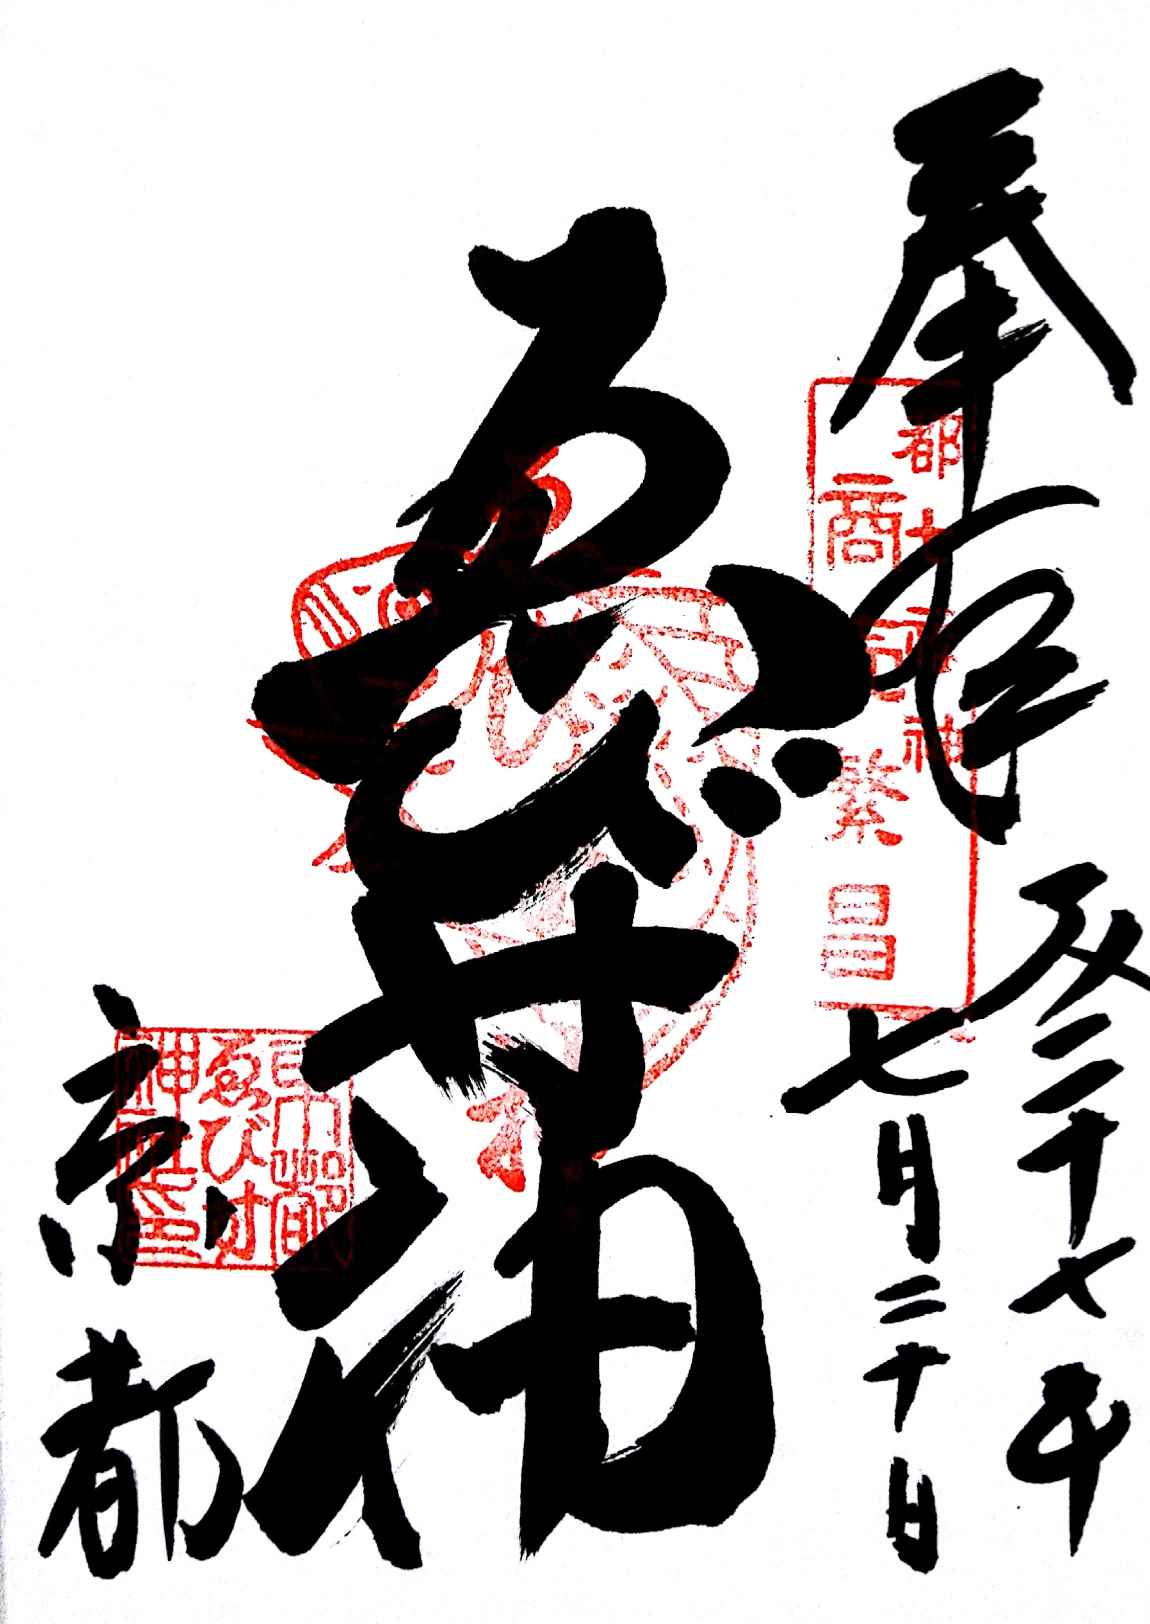 奉拝
二十七年
七月二十日
都七福神
商売繁昌
ゑびす神
京都
京都
ゑびす
神社印